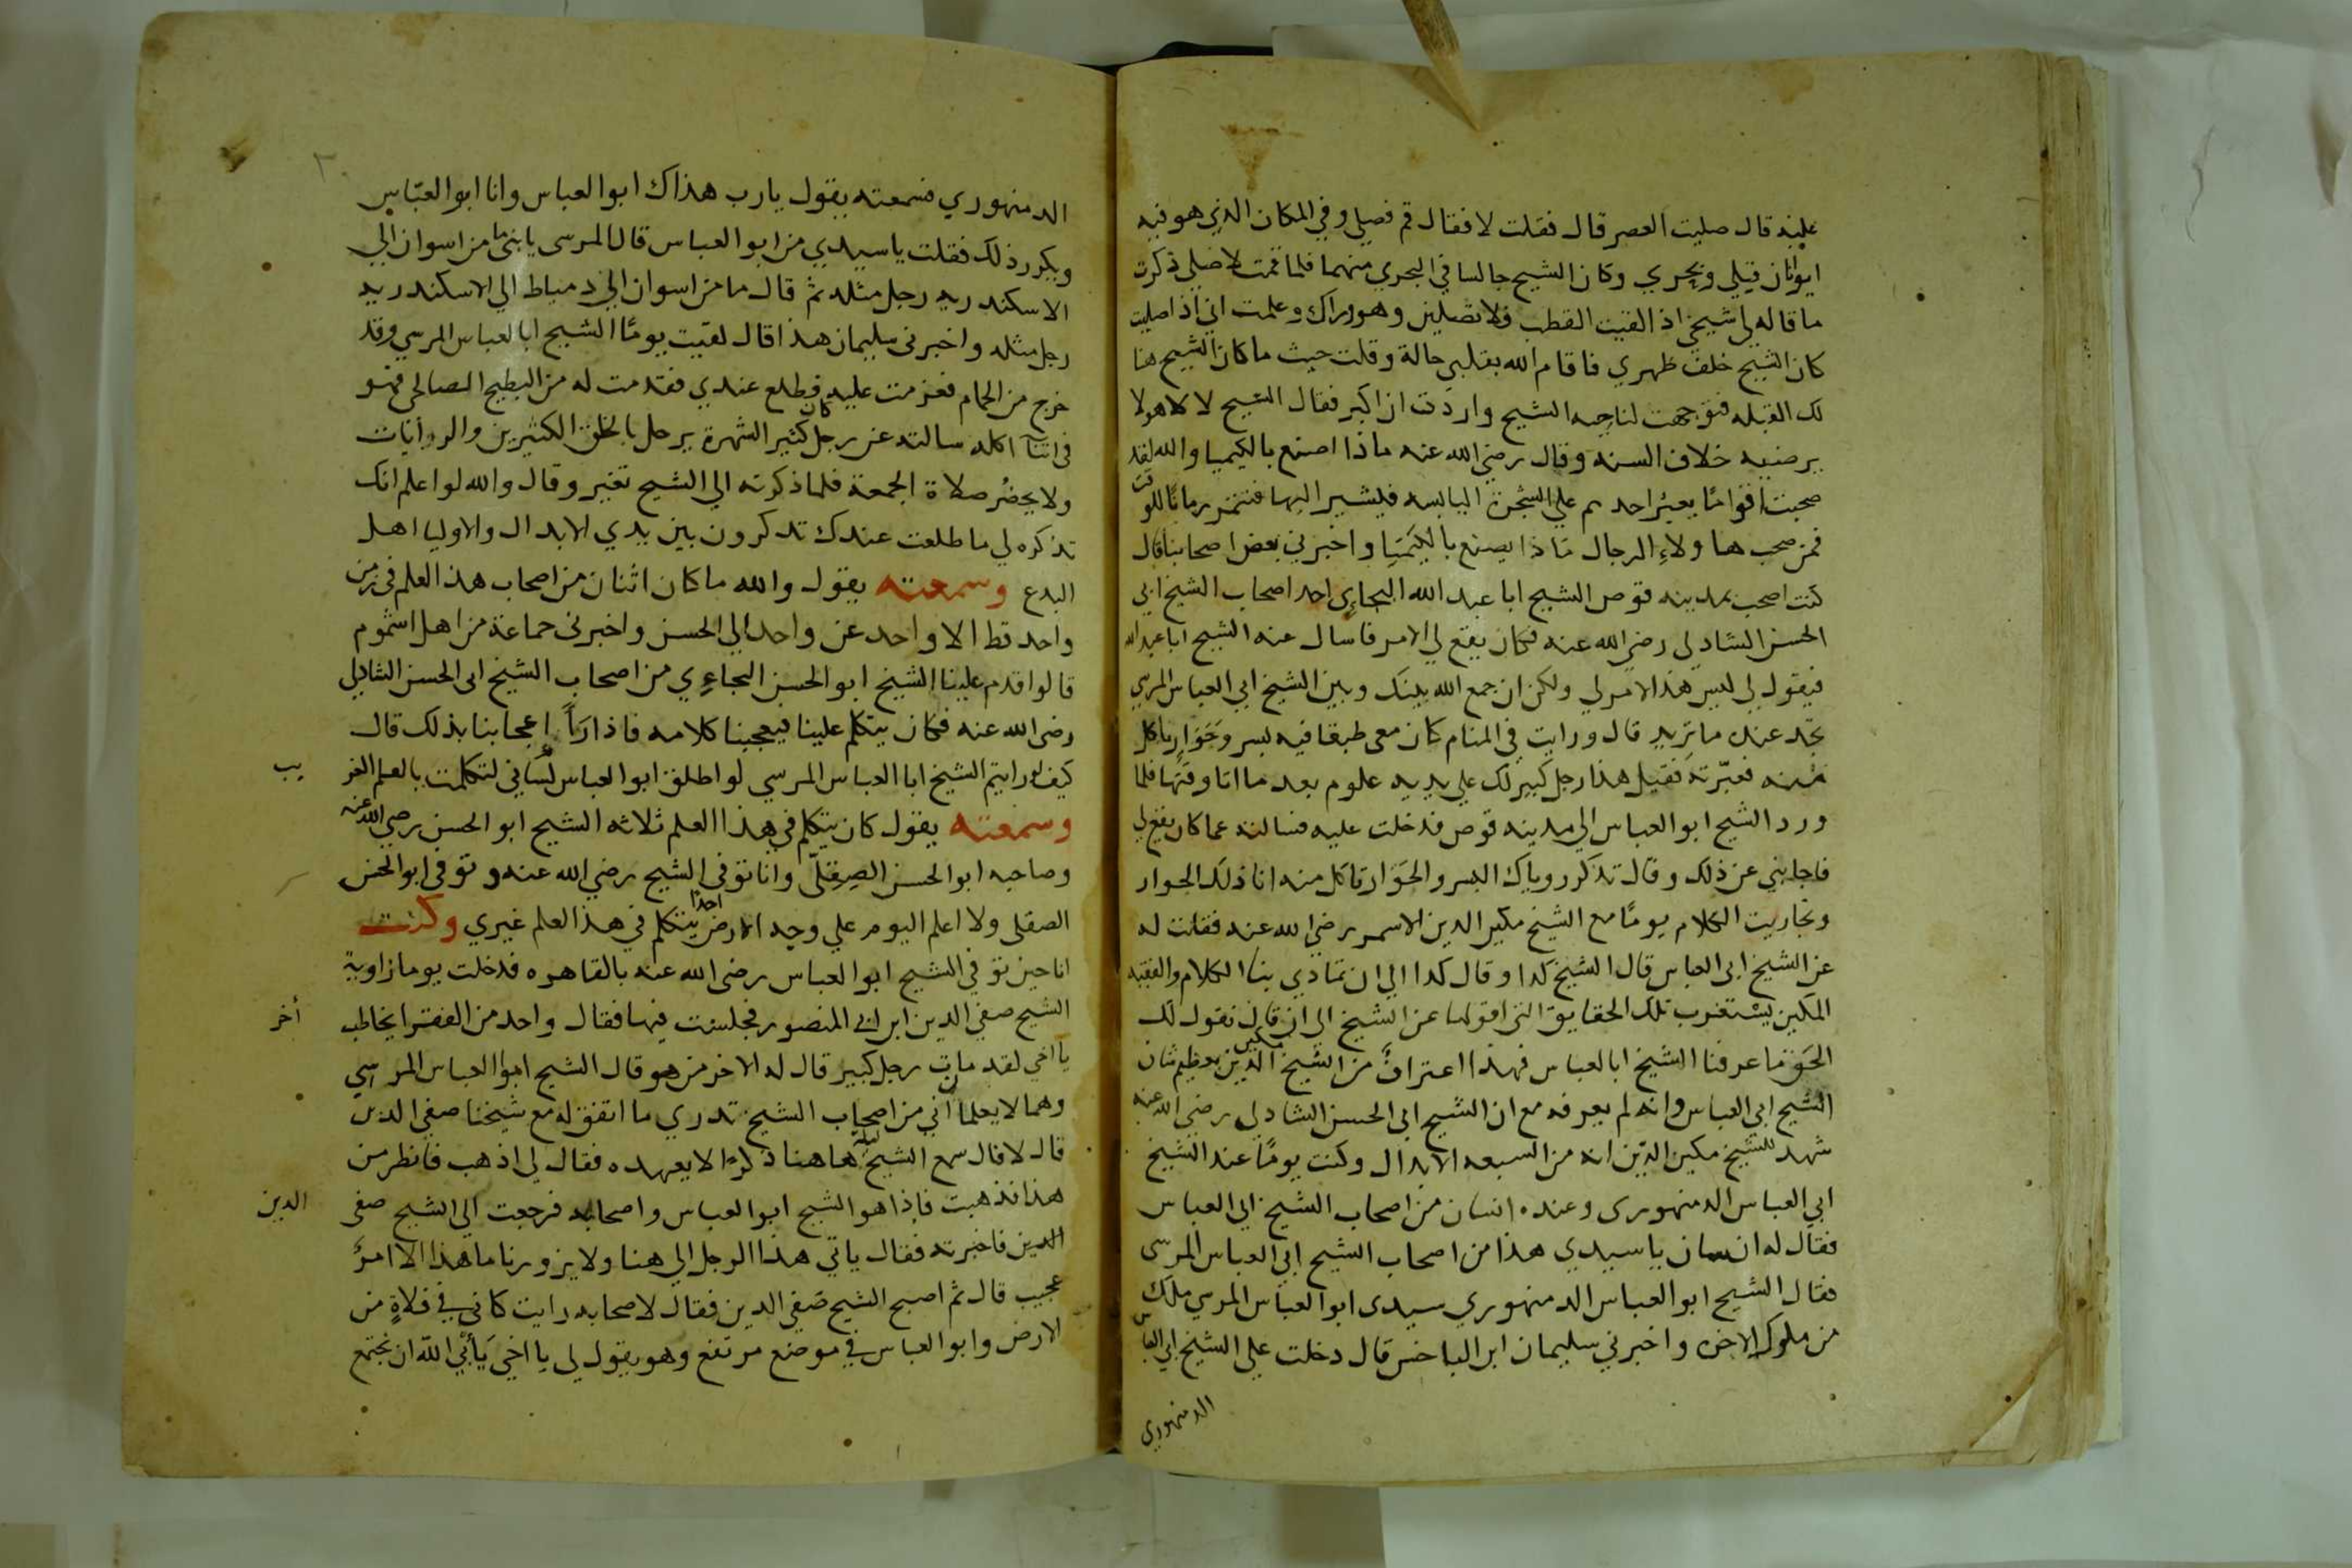 عليه قال صليت العصر قال فقلت لا فقال قم فصلي وفي المكان الذي هو فيه
ايوانان قبلي وبحري وكان الشيخ جالسا في البحري منهما فلما قمت لاصلي ذكرت
ما قاله لي شيخي اذا لقيت القطب فلا تصلين وهو وراك وعلمت اني اذا صليت
كان الشيخ خلف ظهري فاقام الله بقلبي حالة وقلت حيث ما كان الشيخ هنا
لك القبله فتوجهت لناحيه الشيخ واردت ان اكبر فقال الشيخ لا لا هو لا
يرضيه خلاف السنه وقال رضي الله عنه ماذا اصنع بالكيميا والله لقد
صحبت اقوامًا يعبر احدهم علي الشجرة اليابسه فيشير اليها فتثمر رمانًا للوقت
فمن صحب هاولاءِ الرجال ماذا يصنع بالكيميا واخبرني بعض اصحابنا قال
كنت اصحب بمدينه قوص الشيخ ابا عبد الله البجاءي احد اصحاب الشيخ ابي
الحسن الشادلي رضي الله عنه فكان يقع لي الامر فاسال عنه الشيخ ابا عبد الله
فيقول لي ليس هذا الامر لي ولكن ان جمع الله بينك وبين الشيخ ابي العباس المرسي
تجد عنده ما تريد قال ورايت في المنام كان معي طبقا فيه بسر وحَوَارياكل
منه فعبّرته فقيل هذا رجل كبير لك علي يديه علوم بعد ما اتا وقتها فلما
ورد الشيخ ابو العباس الي مدينه قوص فدخلت عليه فسالته عما كان يقع لي
فاجابني عن ذلك وقال تذكر روياك البسر والحَوَار تاكل منه انا ذلك الحوار
وتجاريت الكلام يومًا مع الشيخ مكين الدين الاسمر رضي الله عنه فقلت له
عن الشيخ ابي العباس قال الشيخ كدا وقال كدا الي ان تمادي بنا الكلام والفقيه
المكين يستغرب تلك الحقايق التي اقولها عن الشيخ الي ان قال نقول لك
الحَق ما عرفنا الشيخ ابا لعباس فهذا اعترافٌ من الشيخ مكين الدين بعظيم شان
الشيخ ابي العباس وانه لم يعرفه مع ان الشيخ ابي الحسن الشادلي رضي الله عنه
شهد للشيخ مكين الدّين انه من السبعه الابدال وكنت يومًا عند الشيخ
ابي العباس الدمنهوري وعنده انسان من اصحاب الشيخ ابي العباس
فقال له انسان يا سيدي هذا من اصحاب الشيخ ابي العباس المرسي
فقال الشيخ ابو العباس الدمنهوري سيدي ابو العباس المرسي ملك
من ملوك الاخره واخبرني سليمان ابن الباخس قال دخلت علي الشيخ ابي العباس
الدمنهوري
الدمنهوري فسمعته يقول يا رب هذاك ابو العباس وانا ابو العبّاس
ويكرر ذلك فقلت يا سيدي من ابو العباس قال المرسي يا بني ما من اسوان الي
الاسكندريه رجل مثله ثم قال ما من اسوان الي دمياط الي الاسكندريه
رجل مثله واخبرني سليمان هذا قال لقيت يومًا الشيخ ابا لعباس المرسي وقد
خرج من الحمام فعزمت عليه فطلع عندي فقدمت له من البطيح الصالحي فهو
في اثنآ اكله سالته عن رجل كان كثير الشهرة يرحل بالخلق الكثيرين والرايات
ولا يحضُر صلاة الجمعة فلما ذكرته الي الشيخ تغير وقال والله لو اعلم انك
تذكره لي ما طلعت عندك تدكرون بين يدي الابدال والاوليا اهل
البدع وسمعته يقول والله ما كان اثنان من اصحاب هذا العلم في زمن
واحد قط الا واحد عن واحد الي الحسن واخبرني جماعة من اهل اشموم
قالوا قدم علينا الشيخ ابو الحسن البجاءي من اصحاب الشيخ ابي الحسن الشاذلي
رضي الله عنه فكان يتكلم علينا فيعجبنا كلامه فاذا رَاً اعجابنا بذلك قال
كيف لو رايتم الشيخ ابا العباس المرسي لو اطلق ابو العباس لساني لتكلمت بالعلم الغر يب
وسمعته يقول كان يتكلم في هذا العلم ثلاثه الشيخ ابو الحسن رضي الله عنه
وصاحبه ابو الحسن الصِقلّي وانا توفي الشيخ رضي الله عنه وتوفي ابو الحسن
الصقلي ولا اعلم اليوم علي وجه الارض احدًا يتكلم في هذا العلم غيري وكنت
انا حين توفي الشيخ ابو العباس رضي الله عنه بالقاهره فدخلت يوما زاوية
الشيخ صفي الدين ابن ابي المنصور فجلست فيها فقال واحد من الفقرا يخاطب أخر
يآ اخي لقد مات رجل كبير قال له الاخر من هو قال الشيخ ابو العباس المرسي
وهما لا يعلمان اني من اصحاب الشيخ تدري ما اتفق له مع شيخنا صفي الدين
قال لا قال سمع الشيخ ليلة هاهنا ذكرًا لا يعهده فقال لي اذهب فانظر من
هذا فذهبت فإذا هو الشيخ ابو العباس واصحابه فرجعت الي الشيخ صفي الدين
الدين فاخبرته فقال ياتي هذا الرجل الي هنا ولا يزورنا ما هذا الا امرٌ
عجيب قال ثم اصبح الشيخ صَفي الدين فقال لاصحابه رايت كاني في فلاةٍ من
الارض وابو العباس في موضع مرتفع وهو يقول لي يا اخي يَأبي الله ان نجتمع